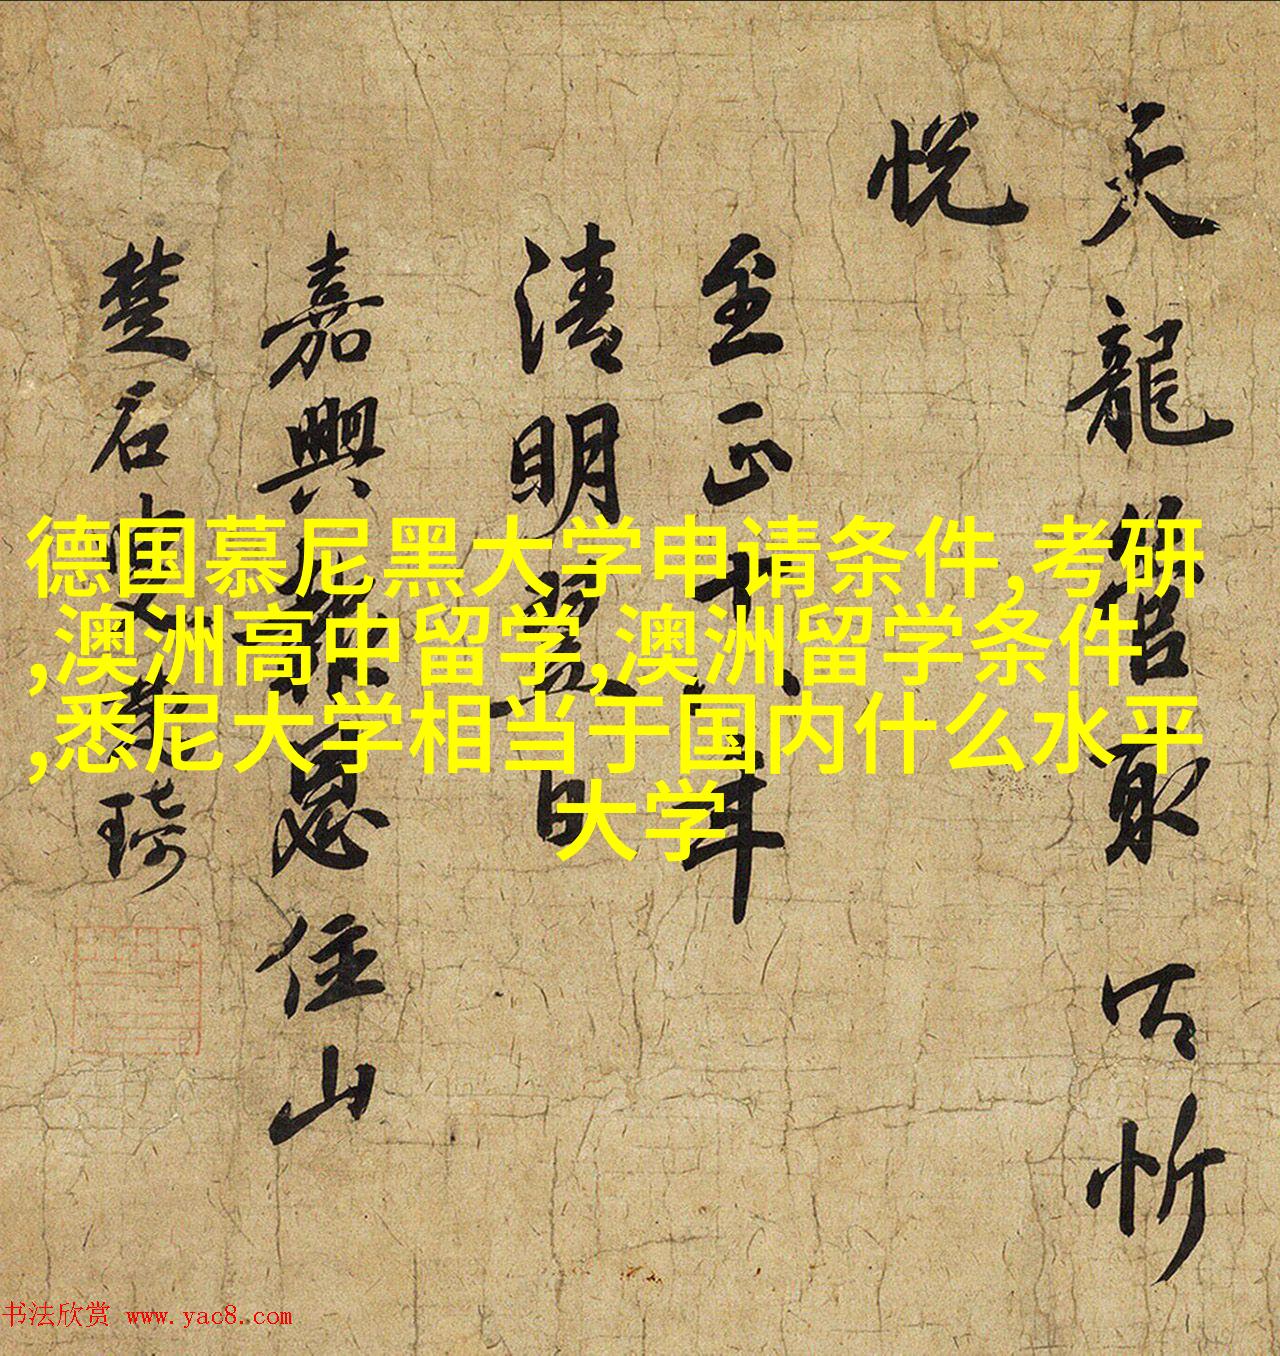 德国慕尼黑大学申请条件,考研
,澳洲高中留学,澳洲留学条件
,悉尼大学相当于国内什么水平
大学
天龍管取忻
悦
至正十年
清明翌日
嘉興報恩住山
楚石叟梵琦
书法欣赏 www.yac8.com